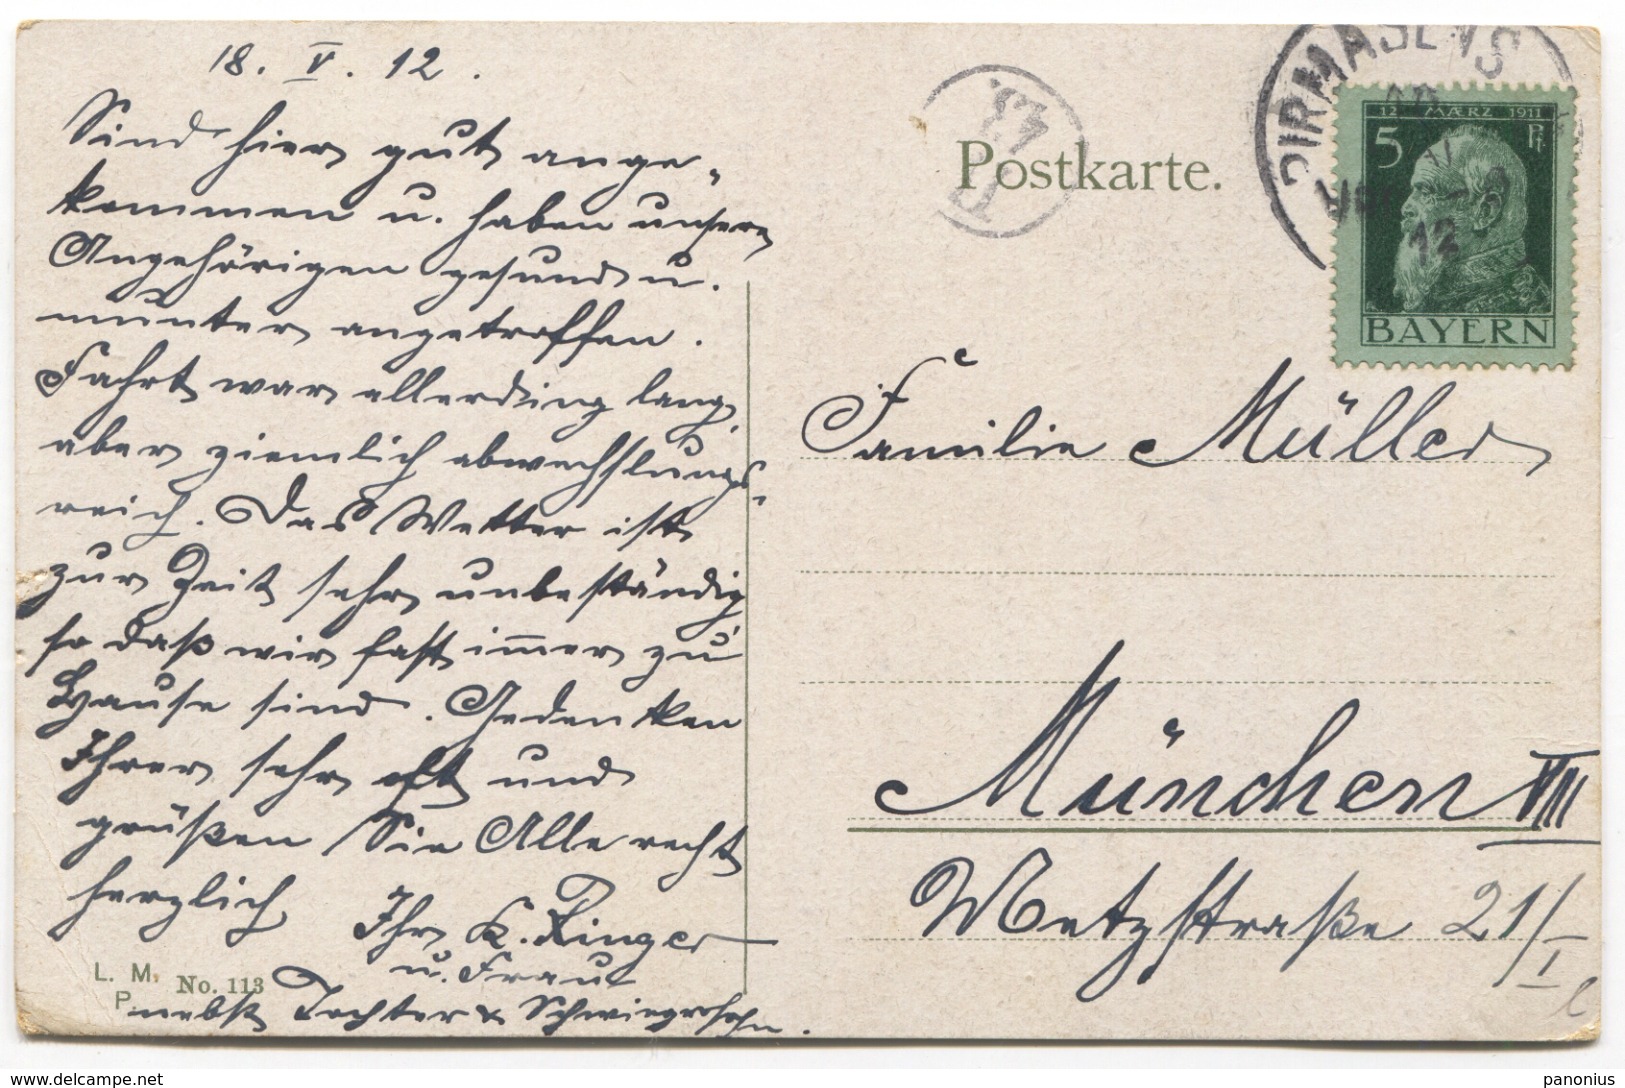 18. V. 12.
Sind hier gut ange-
kommen u. haben unsere
Angehörigen gesund u.
munter angetroffen.
Fahrt war allerding lang,
aber ziemlich abwechslungs-
reich. Das Wetter ist
zur Zeit sehr unbeständig
so daß wir fast immer zu
Hause sind. Gedenken
Ihrer sehr oft und
grüßen Sie Alle recht
herzlich
Ihr K. Ringer
u. Frau
nebst Tochter & Schwiegersohn.
L. M.
P.
No. 113
Postkarte.
43.
PIRMASENS
12
12 MÆRZ 1911
5 Pf.
BAYERN
Familie Müller
München VIII
Metzstraße 21/I
l
delcampe.net
panonius